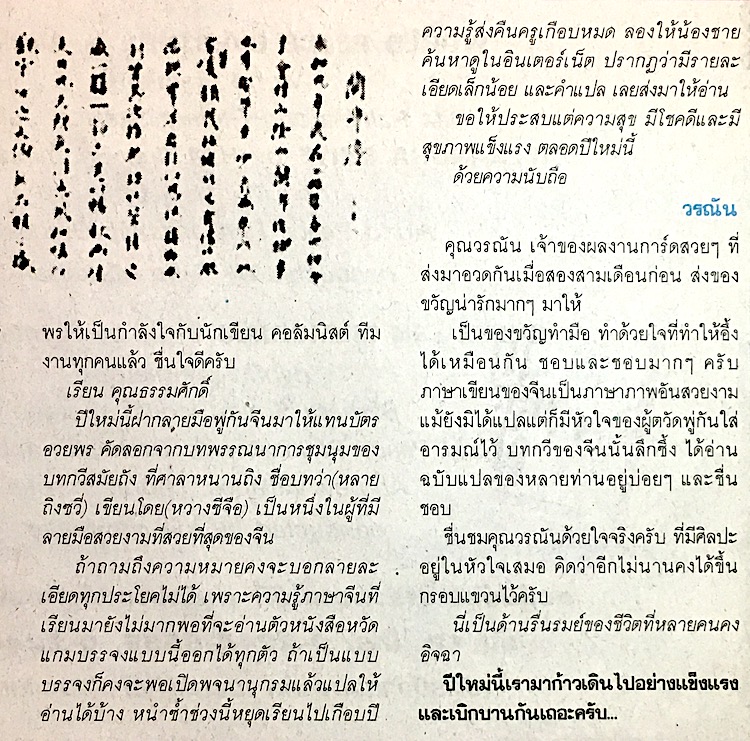 พรให้เป็นกำลังใจกับนักเขียน คอลัมนิสต์ ทีม
งานทุกคนแล้ว ชื่นใจดีครับ
เรียน คุณธรรมศักดิ์
ปีใหม่นี้ฝากลายมือพู่กันจีนมาให้แทนบัตร
อวยพร คัดลอกจากบทพรรณนาการชุมนุมของ
บทกวีสมัยถัง ที่ศาลาหนานถิง ชื่อบทว่า(หลาย
ถิงซวี่) เขียนโดย(หวางซีจือ) เป็นหนึ่งในผู้ที่มี
ลายมือสวยงามที่สวยที่สุดของจีน
ถ้าถามถึงความหมายคงจะบอกลายละ
เอียดทุกประโยคไม่ได้ เพราะความรู้ภาษาจีนที่
เรียนมายังไม่มากพอที่จะอ่านตัวหนังสือหวัด
แกมบรรจงแบบนี้ออกได้ทุกตัว ถ้าเป็นแบบ
บรรจงก็คงจะพอเปิดพจนานุกรมแล้วแปลให้
อ่านได้บ้าง หนำซ้ำช่วงนี้หยุดเรียนไปเกือบปี
ความรู้ส่งคืนครูเกือบหมด ลองให้น้องชาย
ค้นหาดูในอินเตอร์เน็ต ปรากฏว่ามีรายละ
เอียดเล็กน้อย และคำแปล เลยส่งมาให้อ่าน
ขอให้ประสบแต่ความสุข มีโชคดีและมี
สุขภาพแข็งแรง ตลอดปีใหม่นี้
ด้วยความนับถือ
วรณัน
คุณวรณัน เจ้าของผลงานการ์ดสวยๆ ที่
ส่งมาอวดกันเมื่อสองสามเดือนก่อน ส่งของ
ขวัญน่ารักมากๆ มาให้
เป็นของขวัญทำมือ ทำด้วยใจที่ทำให้อึ้ง
ได้เหมือนกัน ชอบและชอบมากๆ ครับ
ภาษาเขียนของจีนเป็นภาษาภาพอันสวยงาม
แม้ยังมิได้แปลแต่ก็มีหัวใจของผู้ตวัดพู่กันใส่
อารมณ์ไว้ บทกวีของจีนนั้นลึกซึ้ง ได้อ่าน
ฉบับแปลของหลายท่านอยู่บ่อยๆ และชื่น
ชอบ
ชื่นชมคุณวรณันด้วยใจจริงครับ ที่มีศิลปะ
อยู่ในหัวใจเสมอ คิดว่าอีกไม่นานคงได้ขึ้น
กรอบแขวนไว้ครับ
นี่เป็นด้านรื่นรมย์ของชีวิตที่หลายคนคง
อิจฉา
ปีใหม่นี้เรามาก้าวเดินไปอย่างแข็งแรง
และเบิกบานกันเถอะครับ...